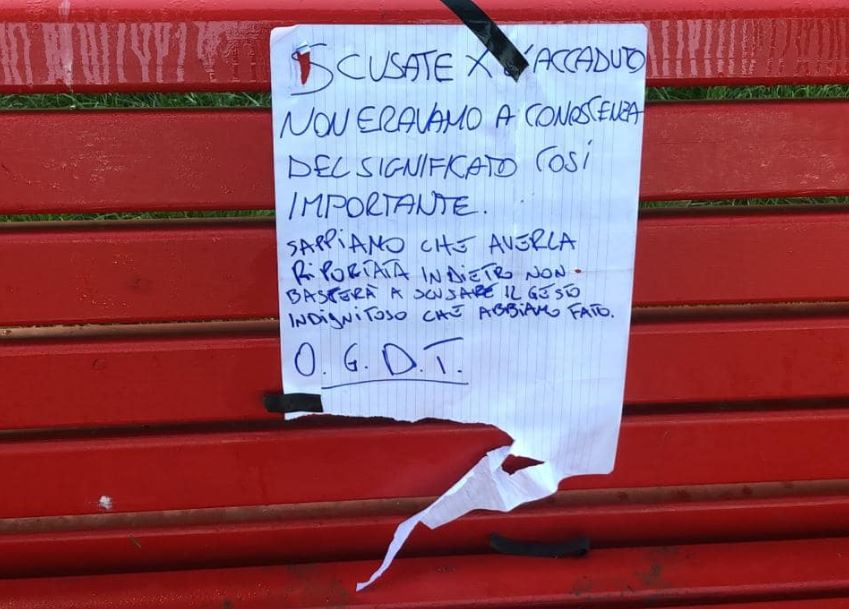 SCUSATE X L'ACCADUTO
NON ERAVAMO A CONOSCENZA
DEL SIGNIFICATO COSÍ
IMPORTANTE.
SAPPIAMO CHE AVERLA
RIPORTATA INDIETRO NON
BASTERÀ A SCUSARE IL GESTO
INDIGNITOSO CHE ABBIAMO FATO.
O. G. D. T.